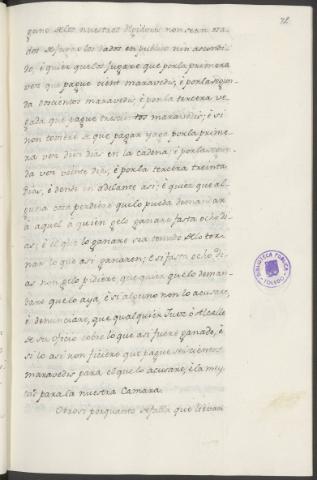 72
guno de los nuestros Regidores non sean osa-
dos de jugar los dados en publico nin ascondi-
do, é quier que los jugare que por la primera
vez que pague cient maravedis, é por la segun-
da docientos maravedis, é por la tercera ve-
gada que pague trescientos maravedis; é si
non toviere de que pagar yaga por la prime-
ra vez diez dias en la cadena, é por la segun-
da vez veinte dias, é por la tercera treinta
dias, é dende en adelante asi; é quier que al-
guna cosa perdiere que lo pueda demandar
a aquel á quien gelo ganare fasta ocho di-
as; é el que lo ganare sea tenudo de lo tor-
nar lo que asi ganaren; é si fasta ocho di-
as non gelo pidiere, que quier que lo deman-
dare que lo aya, é si alguno non lo acusare,
é denunciare, que qualquier Juez ó Alcalle
de su oficio sobre lo que asi fuere ganado, é
si lo asi non ficiere que pague seiscientos
maravedis para el que lo acusare, é la miy-
tat para la nuestra Camara.
Otrosi porquanto se falla que llevan
BIBLIOTECA PÚBLICA
TOLEDO